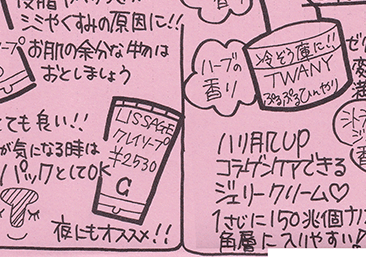 シミやくすみの原因に!!
お肌の余分な物は
おとしましょう
ても良い!!
が気になる時は
パックとしてOK
LISSAGE
クレイソープ
¥2530
夜にもオススメ!!
ハーブの
香り
冷ぞう庫に!!
TWANY
ぷるぷるひんやり
ハリ肌UP
コラーゲンケアできる
ジェリークリーム♡
1さじに150兆個ナノ
角層に入りやすい!